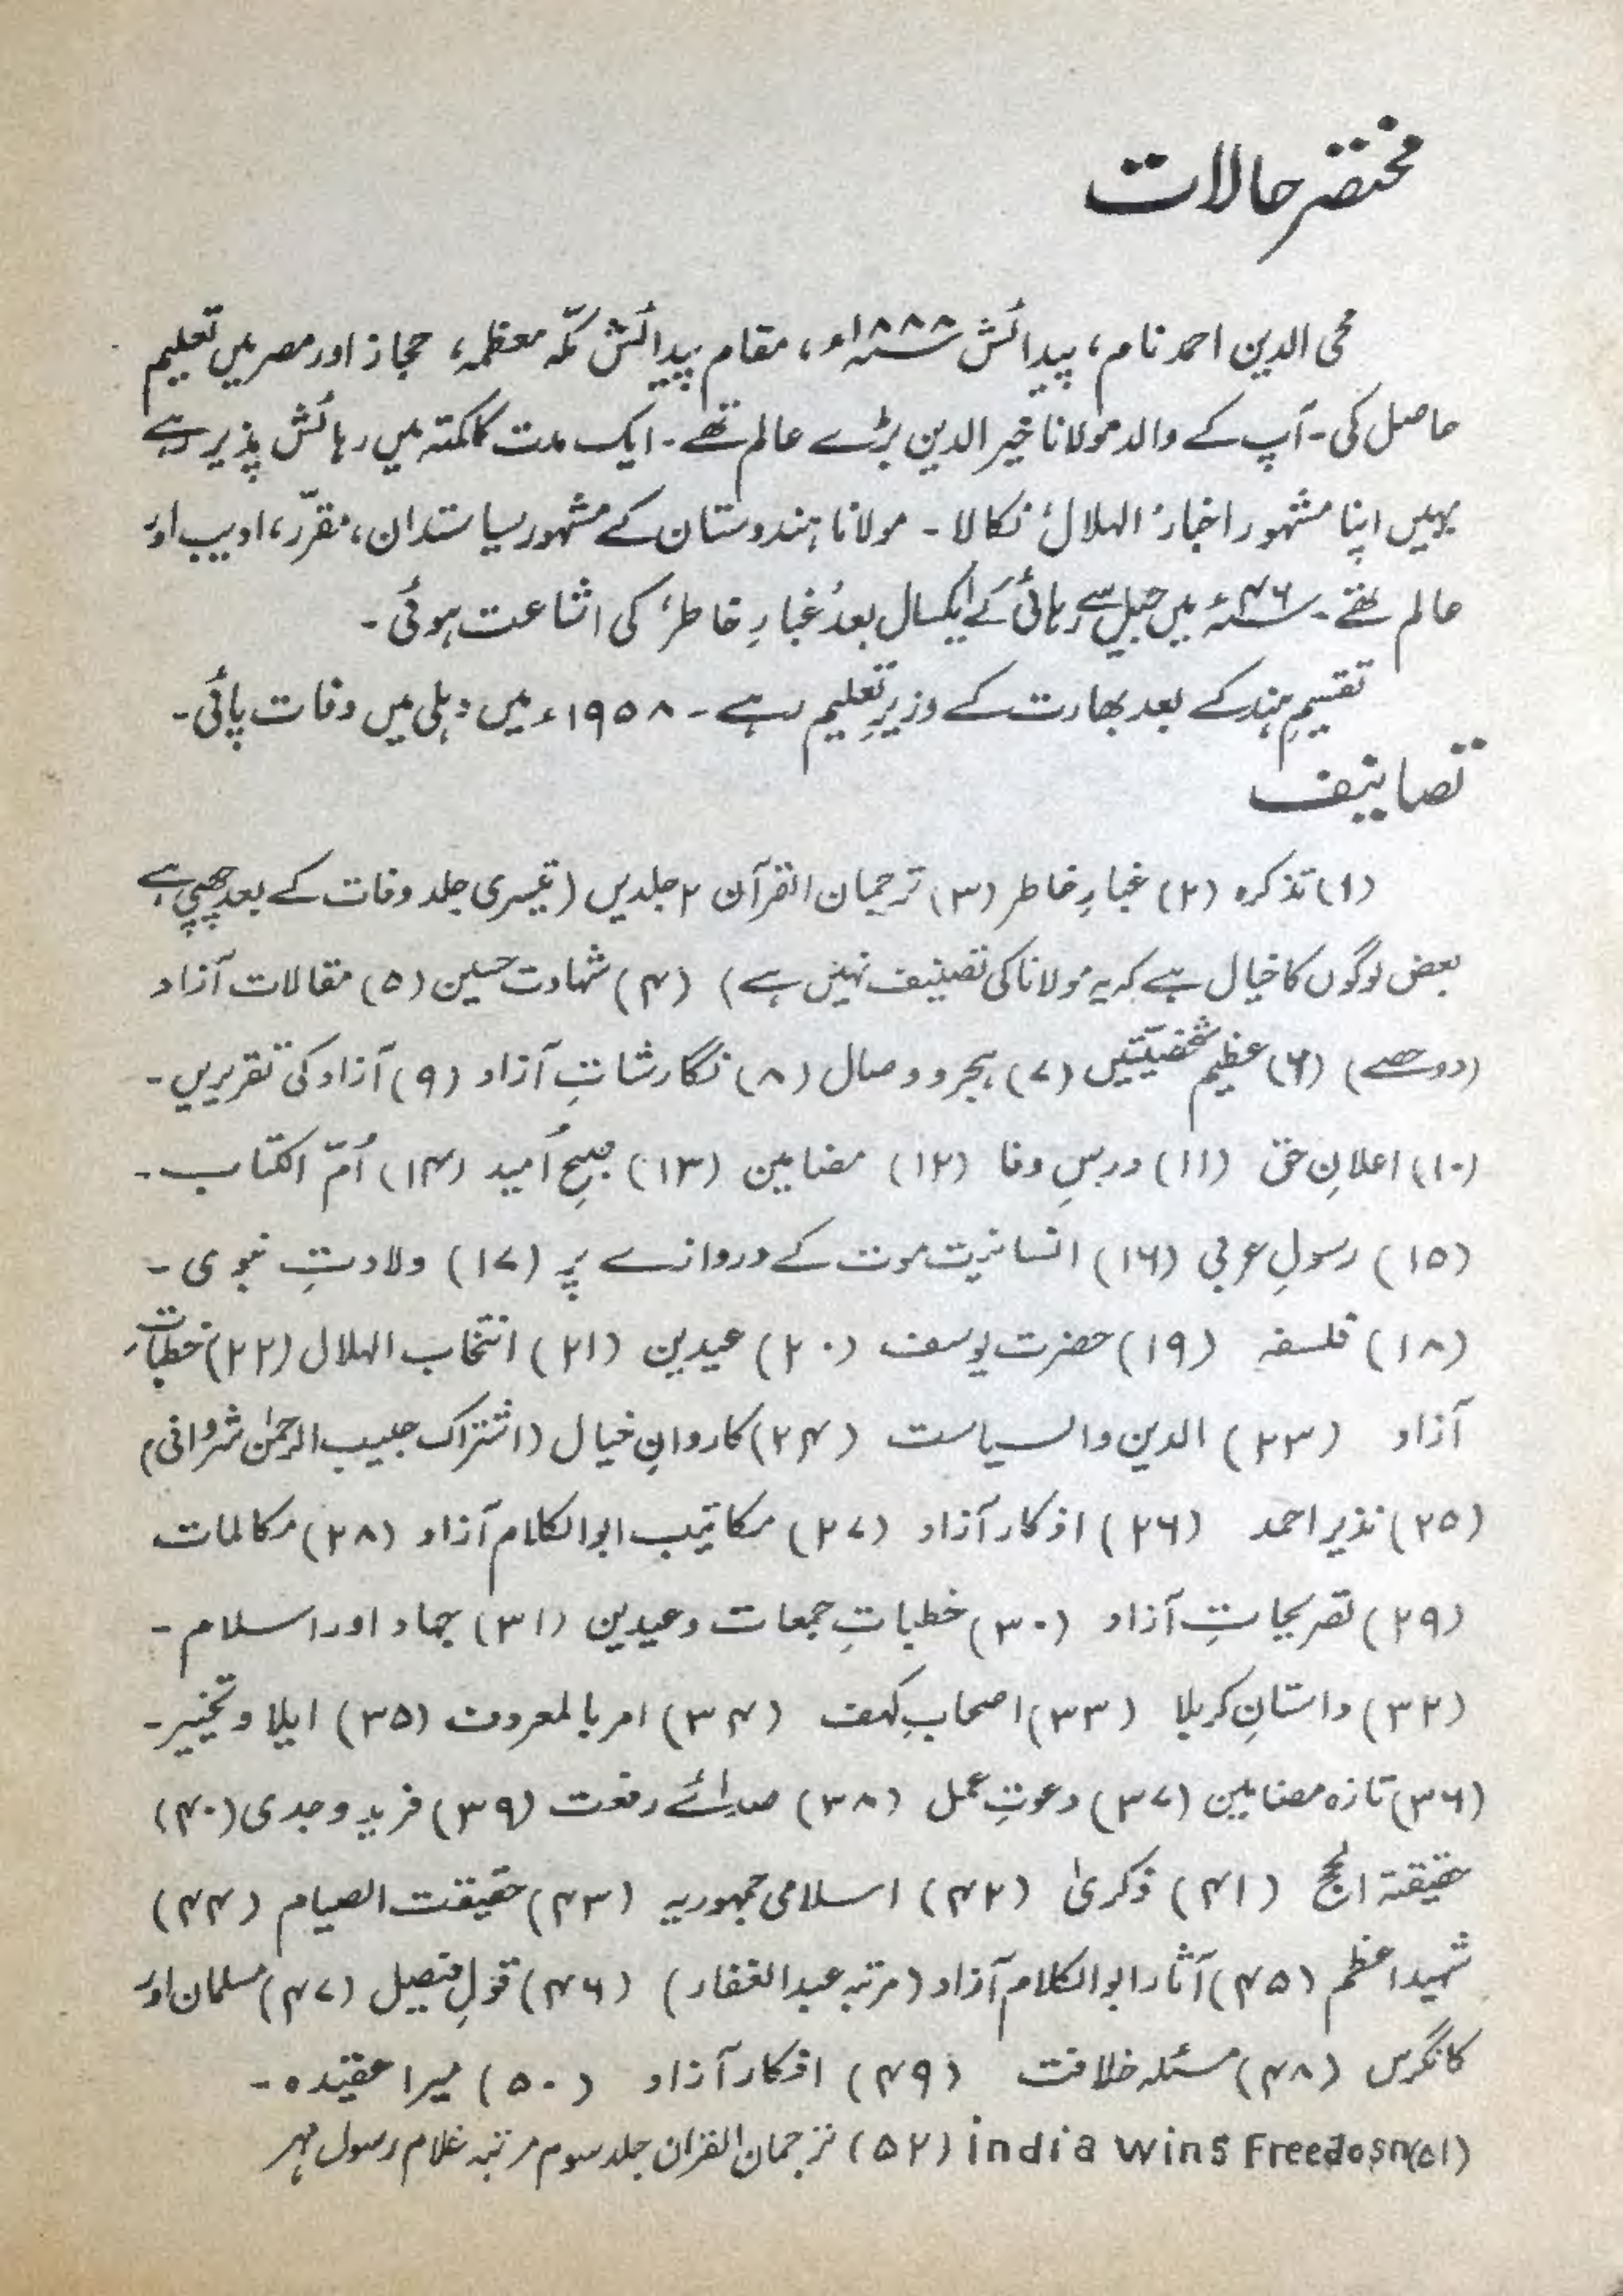 مختصر حالات
محی الدین احمد نام، پیدائش ۱۸۸۸ء، مقام پیدائش مکّہ معظمہ، حجاز اور مصر میں تعلیم
حاصل کی۔ آپ کے والد مولانا خیر الدین بڑے عالم تھے۔ ایک مدت کلکتہ میں رہائش پذیر رہے
یہیں اپنا مشہور اخبار ’الہلال‘ نکالا۔ مولانا ہندوستان کے مشہور سیاستدان، مقرّر، ادیب اور
عالم تھے۔ ۴۶ء میں جیل سے رہائی کے ایکسال بعد ’غبارِ خاطر‘ کی اشاعت ہوئی۔
تقسیمِ ہند کے بعد بھارت کے وزیرِ تعلیم رہے۔ ۱۹۵۸ء میں دہلی میں وفات پائی۔
تصانیف
(۱) تذکرہ (۲) غبارِ خاطر (۳) ترجمان القرآن ۲ جلدیں (تیسری جلد وفات کے بعد چھپی ہے
بعض لوگوں کا خیال ہے کہ یہ مولانا کی تصنیف نہیں ہے) (۴) شہادت حسین (۵) مقالات آزاد
(دو حصے) (۶) عظیم شخصیتیں (۷) ہجر و وصال (۸) نگارشاتِ آزاد (۹) آزاد کی تقریریں۔
(۱۰) اعلانِ حق (۱۱) درسِ وفا (۱۲) مضامین (۱۳) صبحِ اُمید (۱۴) اُمّ الکتاب۔
(۱۵) رسولِ عربی (۱۶) انسانیت موت کے دروازے پر (۱۷) ولادتِ نبوی۔
(۱۸) فلسفہ (۱۹) حضرت یوسف (۲۰) عیدین (۲۱) انتخاب الہلال (۲۲) خطباتِ
آزاد (۲۳) الدین والسیاست (۲۴) کاروانِ خیال (اشتراک حبیب الرحمٰن شروانی)
(۲۵) نذیر احمد (۲۶) اذکار آزاد (۲۷) مکاتیب ابوالکلام آزاد (۲۸) مکالمات
(۲۹) تصریحاتِ آزاد (۳۰) خطباتِ جمعات و عیدین (۳۱) جہاد اور اسلام۔
(۳۲) داستانِ کربلا (۳۳) اصحابِ کہف (۳۴) امر بالمعروف (۳۵) ایلا و تخییر۔
(۳۶) تازہ مضامین (۳۷) دعوتِ عمل (۳۸) صدائے رفعت (۳۹) فرید وجدی (۴۰)
حقیقۃ الحج (۴۱) ذکریٰ (۴۲) اسلامی جمہوریہ (۴۳) حقیقت الصیام (۴۴)
شہید اعظم (۴۵) آثار ابوالکلام آزاد (مرتبہ عبدالغفار) (۴۶) قولِ فیصل (۴۷) مسلمان اور
کانگرس (۴۸) مسئلہ خلافت (۴۹) افکار آزاد (۵۰) میرا عقیدہ۔
(۵۱) india wins Freedosn (۵۲) ترجمان القران جلد سوم مرتبہ غلام رسول مہر